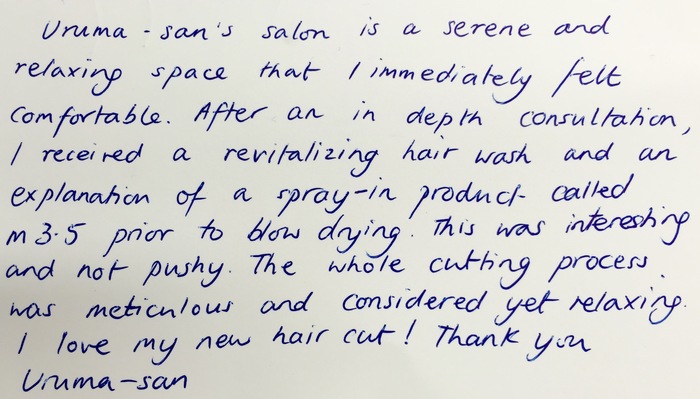 Uruma-san's salon is a serene and
relaxing space that I immediately felt
comfortable. After an in depth consultation,
I received a revitalizing hair wash and an
explanation of a spray-in product called
m3.5 prior to blow drying. This was interesting
and not pushy. The whole cutting process
was meticulous and considered yet relaxing.
I love my new hair cut! Thank you
Uruma-san